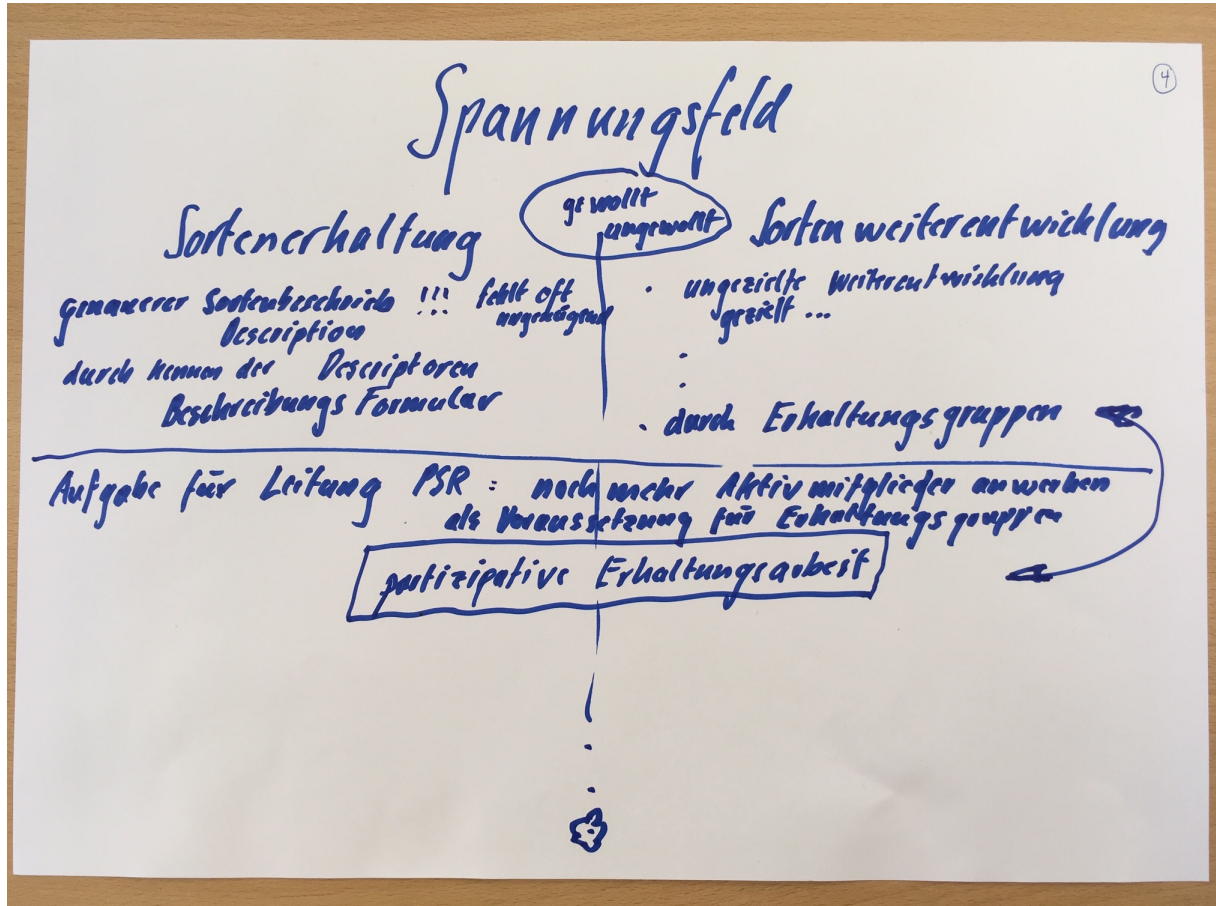 4
Spannungsfeld
gewollt
ungewollt
Sortenerhaltung
Sortenweiterentwicklung
genauerer Sortenbeschrieb !!! fehlt oft
ungenügend
Description
durch kennen der Descriptoren
Beschreibungs Formular
· ungezielte Weiterentwicklung
gezielt ...
·
·
· durch Erhaltungsgruppen
Aufgabe für Leitung PSR : noch mehr Aktivmitglieder anwerben
als Voraussetzung für Erhaltungsgruppen
partizipative Erhaltungsarbeit